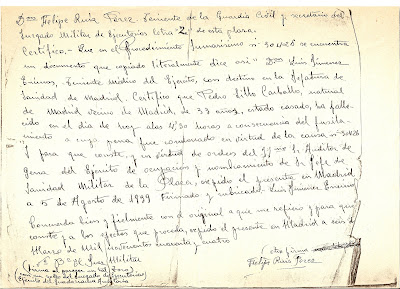 Don Felipe Ruiz Pérez Teniente de la Guardia Civil y secretario del
Juzgado Militar de Ejecutorias letra "Z" de esta plaza.
Certifico.- Que en el Procedimiento Sumarisimo nº 30426 se encuentra
un documento que copiado literalmente dice asi "Don Luis Jimenez
Teniente Médico del Ejercito, con destino en la Jefatura de
Sanidad de Madrid. Certifico que Pedro Carballo, natural
de Madrid vecino de Madrid, de 33 años, estado casado, ha falle
cido en el dia de hoy a las horas a consecuencia del fusila
miento a cuya pena fue condenado en virtud de la causa nº 30426
Y para que conste, y en virtud de orden del Ilmo S. Auditor de
Gerra del Ejercito de ocupacion y nombramiento de la Jefe de
Sanidad Militar de la Plaza, expido el presente en Madrid
a 5 de Agosto de 1939 Firmado y rubricado. Luis Jimenez
Concuerda bien y fielmente con el original a que me refiero y para que
conste y a los efectos que proceda, expido el presente en Madrid a seis de
Marzo de mil novecientos cuarenta y cuatro
Vº Bº El Juez Militar
Felipe Ruiz Perez